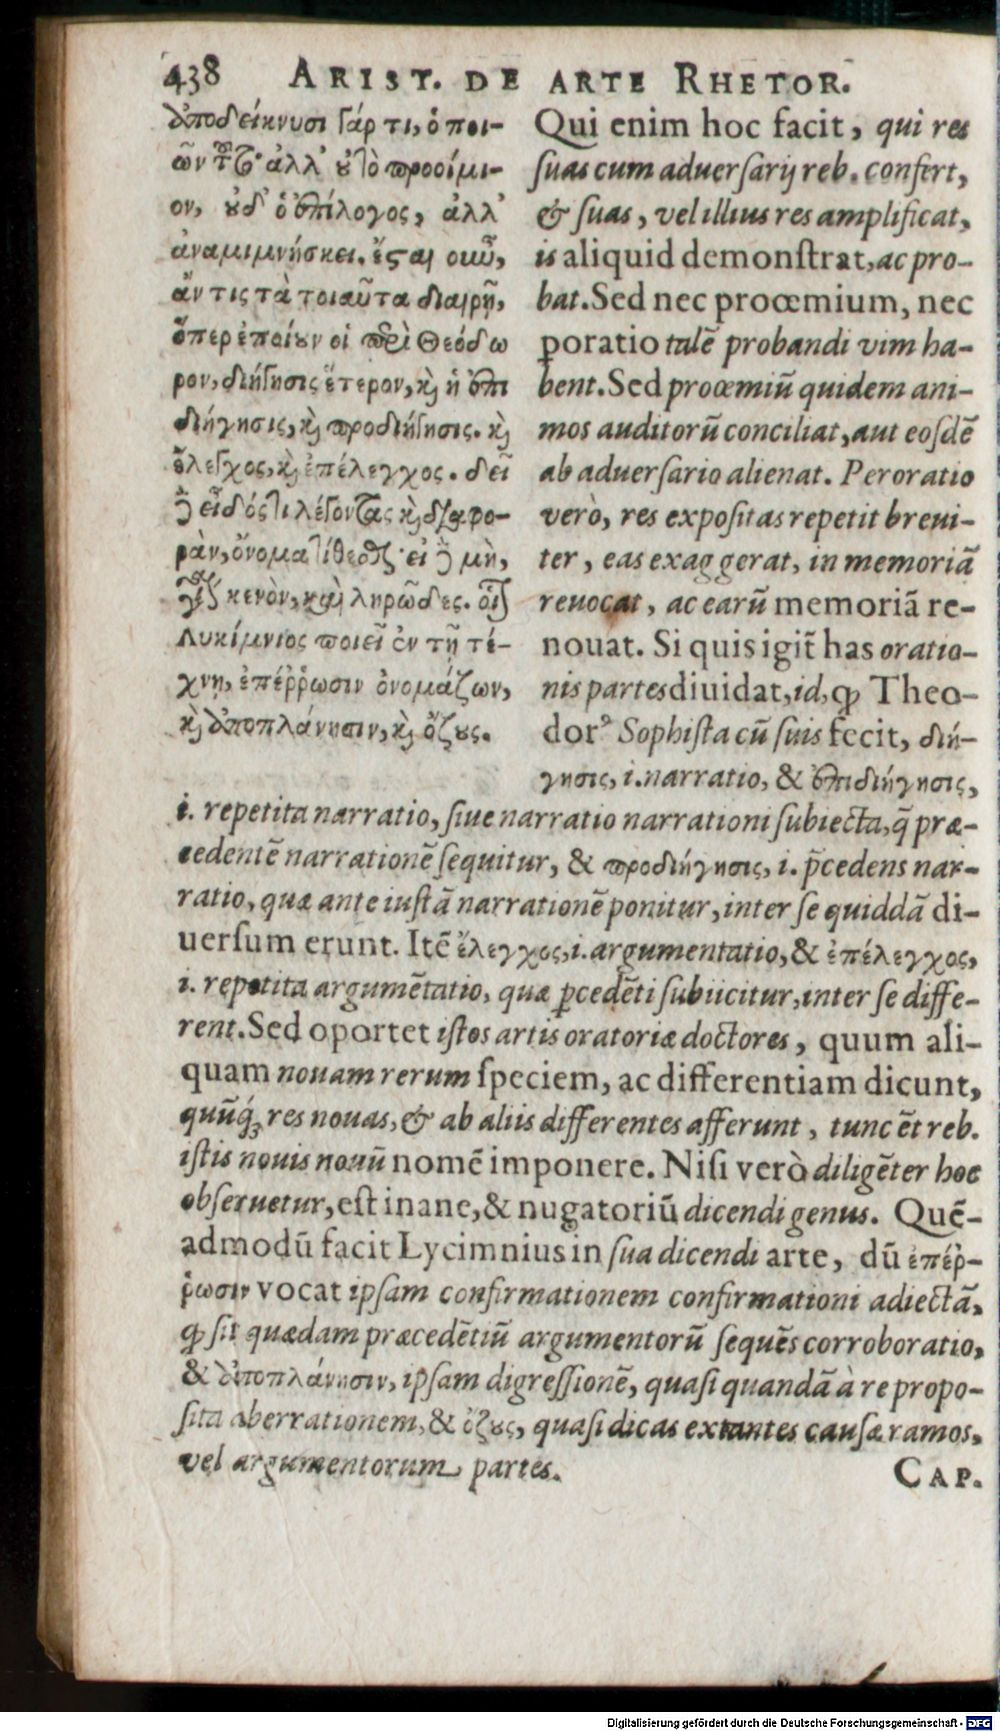 438 ARIST. DE ARTE RHETOR.
ἀποδείκνυσι γάρ τι, ὁ ποι-
ῶν τοῦτο· ἀλλ' οὐ τὸ προοίμι-
ον, οὐδ' ὁ ἐπίλογος, ἀλλ'
ἀναμιμνήσκει. ἔσται οὖν,
ἄν τις τὰ τοιαῦτα διαιρῇ,
ὅπερ ἐποίουν οἱ περὶ Θεόδω
ρον, διήγησις ἕτερον, καὶ ἡ ἐπι
διήγησις, καὶ προδιήγησις. καὶ
ἔλεγχος, καὶ ἐπέλεγχος. δεῖ
δὲ εἶδός τι λέγοντας καὶ διαφο-
ρὰν, ὄνομα τίθεσθαι· εἰ δὲ μὴ,
γίνεται κενὸν, καὶ ληρῶδες. οἷον
Λυκίμνιος ποιεῖ ἐν τῇ τέ-
χνῃ, ἐπέῤῥωσιν ὀνομάζων,
καὶ ἀποπλάνησιν, καὶ ὄζους.
Qui enim hoc facit, qui res
suas cum aduersarij reb. confert,
& suas, vel illius res amplificat,
is aliquid demonstrat, ac pro-
bat. Sed nec proœmium, nec
ꝑoratio talē probandi vim ha-
bent. Sed proœmiū quidem ani-
mos auditorū conciliat, aut eosdē
ab aduersario alienat. Peroratio
verò, res expositas repetit breui-
ter, eas exaggerat, in memoriā
reuocat, ac earū memoriā re-
nouat. Si quis igit̃ has oratio-
nis partes diuidat, id, ꝙ Theo-
dorꝰ Sophista cū suis fecit, διή-
γησις, i. narratio, & ἐπιδιήγησις,
i. repetita narratio, siue narratio narrationi subiecta, q̄ præ-
cedentē narrationē sequitur, & προδιήγησις, i. p̄cedens nar-
ratio, quæ ante iustā narrationē ponitur, inter se quiddā di-
uersum erunt. Itē ἔλεγχος, i. argumentatio, & ἐπέλεγχος,
i. repetita argumētatio, quæ p̄cedēti subiicitur, inter se diffe-
rent. Sed oportet istos artis oratoriæ doctores, quum ali-
quam nouam rerum speciem, ac differentiam dicunt,
quūq́ꝫ res nouas, & ab aliis differentes afferunt, tunc ēt reb.
istis nouis nouū nomē imponere. Nisi verò diligēter hoc
obseruetur, est inane, & nugatoriū dicendi genus. Quē-
admodū facit Lycimnius in sua dicendi arte, dū ἐπέῤ-
ῥωσιν vocat ipsam confirmationem confirmationi adiectā,
ꝙ sit quædam præcedētiū argumentorū sequēs corroboratio,
& ἀποπλάνησιν, ipsam digressionē, quasi quandā à re propo-
sita aberrationem, & ὄζους, quasi dicas extantes causæ ramos,
vel argumentorum partes.
CAP.
Digitalisierung gefördert durch die Deutsche Forschungsgemeinschaft - DFG